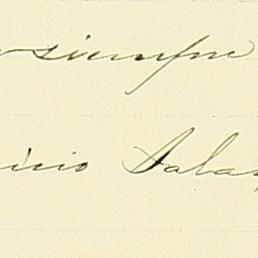 siempre
icio Salas